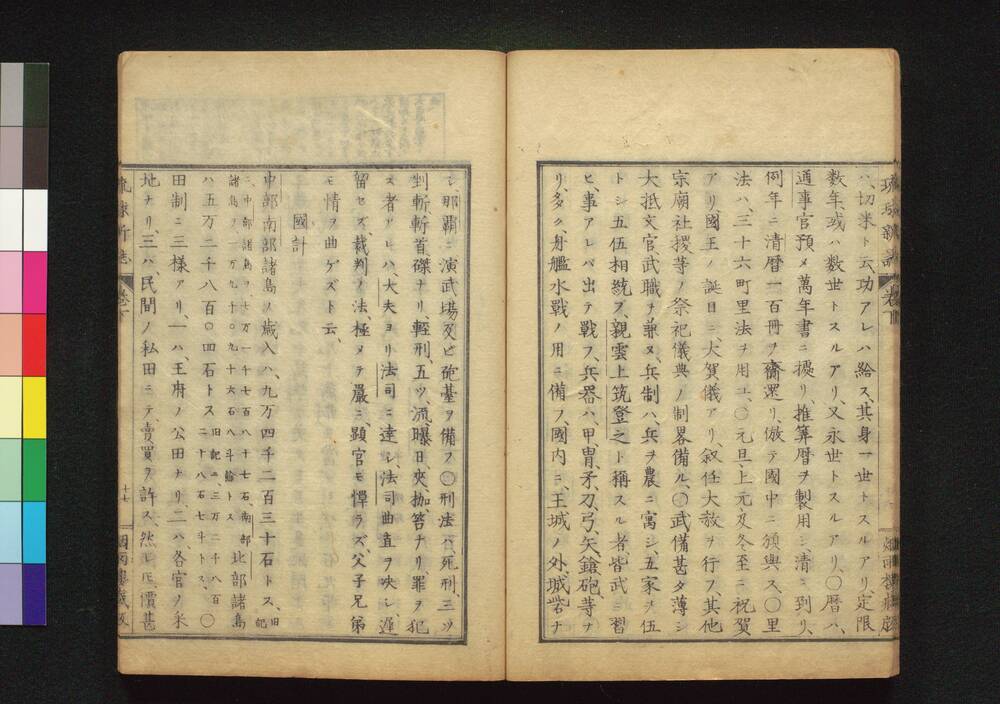 ハ、切米ト云、功アレハ給ス、其身一世トスルアリ、定限
数年、或ハ数世トスルアリ、又永世トスルアリ、〇暦ハ、
通事官預メ萬年書ニ據リ、推筭暦ヲ製用シ、清ニ到リ、
例年ニ清暦一百冊ヲ齎還リ、倣テ國中ニ頒與ス、〇里
法ハ、三十六町里法ヲ用ユ、〇元旦、上元、及冬至ニ祝賀
アリ、國王ノ誕日ニ、大賀儀アリ、叙任大赦ヲ行フ、其他
宗廟社稷等ノ祭祀儀典ノ制畧備ル、〇武備甚タ薄シ
大抵文官武職ヲ兼ヌ、兵制ハ、兵ヲ農ニ寓シ、五家ヲ伍
トシ五伍相統フ、親雲上筑登之ト称スル者皆武ニ習
ヒ、事アレバ出テ戰フ、兵器ハ、甲冑、矛、刀、弓、矢、鎗、砲等ナ
リ、多ク、舟艦水戰ノ用ニ備フ、國内ニ、王城ノ外城砦ナ
シ、那覇ニ演武場及ビ砲臺ヲ備フ〇刑法ハ死刑、三ツ
剉斬、斬首、磔ナリ、輕刑、五ツ、流、曝日、夾、枷、笞ナリ、罪ヲ犯
ス者アレハ、大夫ヨリ法司ニ達シ、法司曲直ヲ决シ遅
留セズ、裁判ノ法、極メテ嚴ニ、顕官モ憚ラズ、父子兄弟
モ情ヲ曲ゲズト云、
國計
中部南部諸島ノ歳入ハ、九万四千二百三十石トス、旧記
ニ、中部諸島ヲ七万一千七百八十七石、南部
諸島ヲ一万九千〇九十六石八斗餘トス
北部諸島
ハ五万二千八百〇四石トス
旧記ニ、三万二千八百
二十八石七斗トス、
〇
田制ニ三様アリ、一ハ、王府ノ公田ナリ、二ハ、各官ノ采
地ナリ、三ハ、民間ノ私田ニテ、賣買ヲ許ス、然レ𪜈價甚
琉球新誌
巻下
十七
烟雨樓蔵板